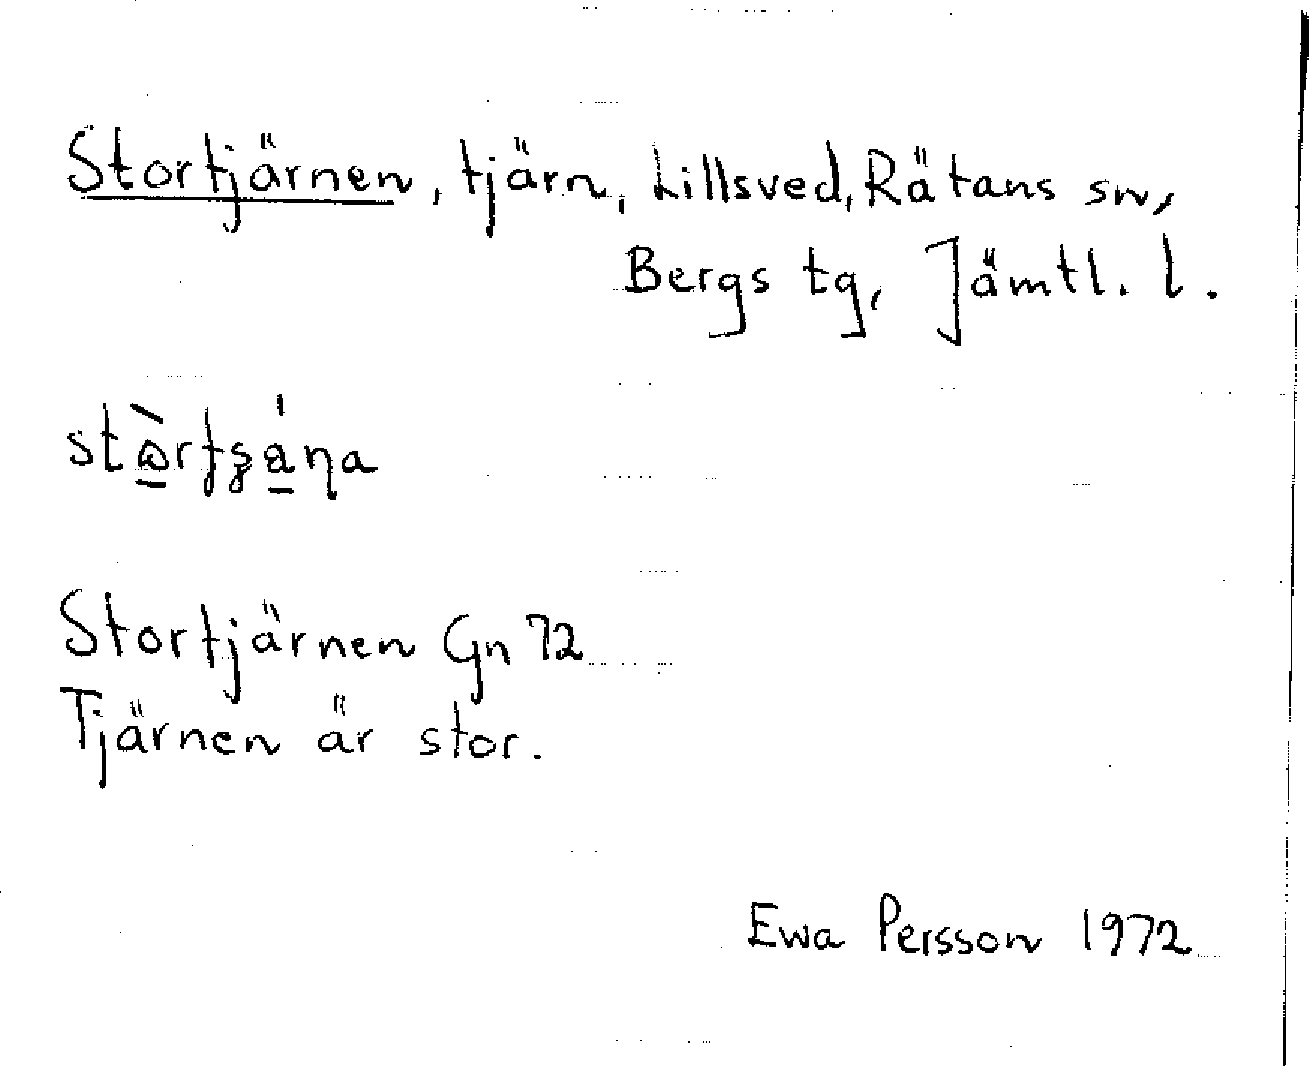 Stortjärnen, tjärn, Lillsved, Rätans sn,
Bergs tg, Jämtl. l.
Stortjärnen Gn 72
Tjärnen är stor.
Ewa Persson 1972